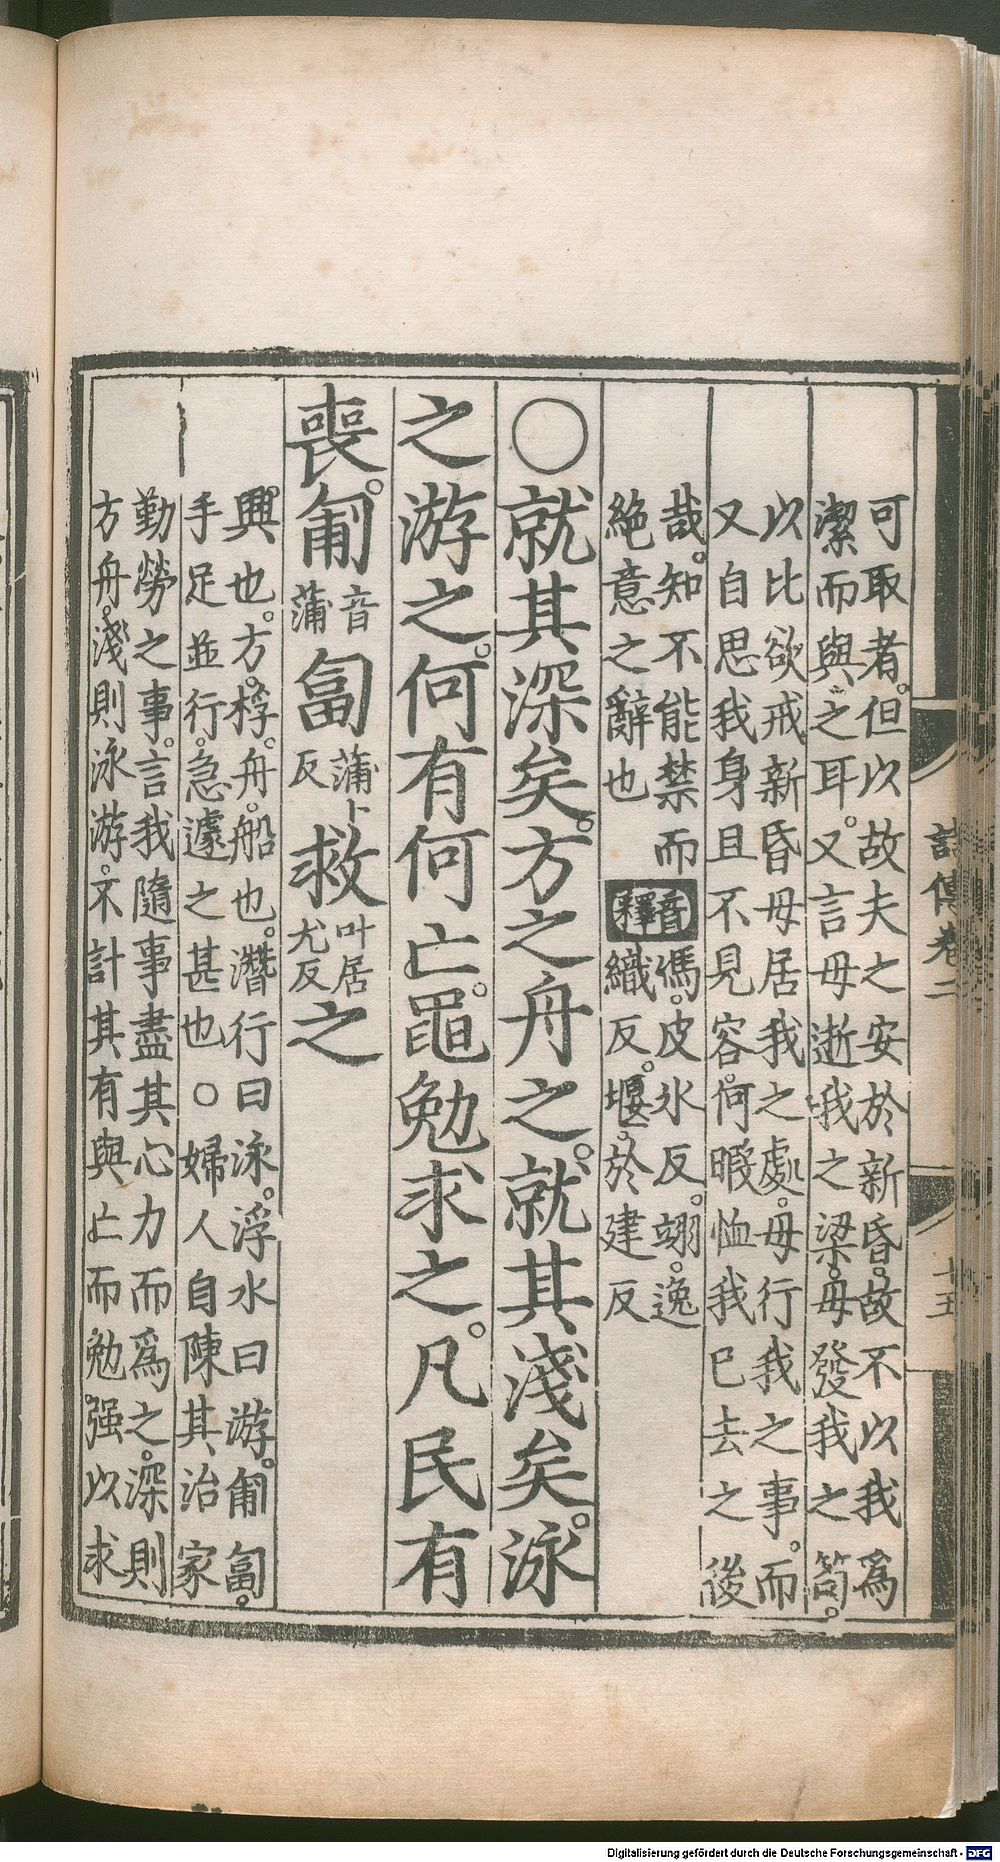 可取者。但以故夫之安於新昏。故不以我爲
潔而與之耳。又言毋逝我之梁。毋發我之笱。
以比欲戒新昏毋居我之處。毋行我之事。而
又自思我身且不見容。何暇恤我已去之後
哉。知不能禁而
絶意之辭也
音釋
傌。皮氷反。翊。逸
織反。堰。於建反
○就其深矣。方之舟之。就其淺矣。泳
之游之。何有何亡。黽勉求之。凡民有
喪。匍音蒲匐蒲卜反救叶居尤反之
興也。方。桴。舟。船也。濳行曰泳。浮水曰游。匍匐。
手足並行。急遽之甚也○婦人自陳其治家
勤勞之事。言我隨事盡其心力而爲之。深則
方舟。淺則泳游。不計其有與亡而勉强以求
詩傳卷二
十五
Digitalisierung gefördert durch die Deutsche Forschungsgemeinschaft - DFG